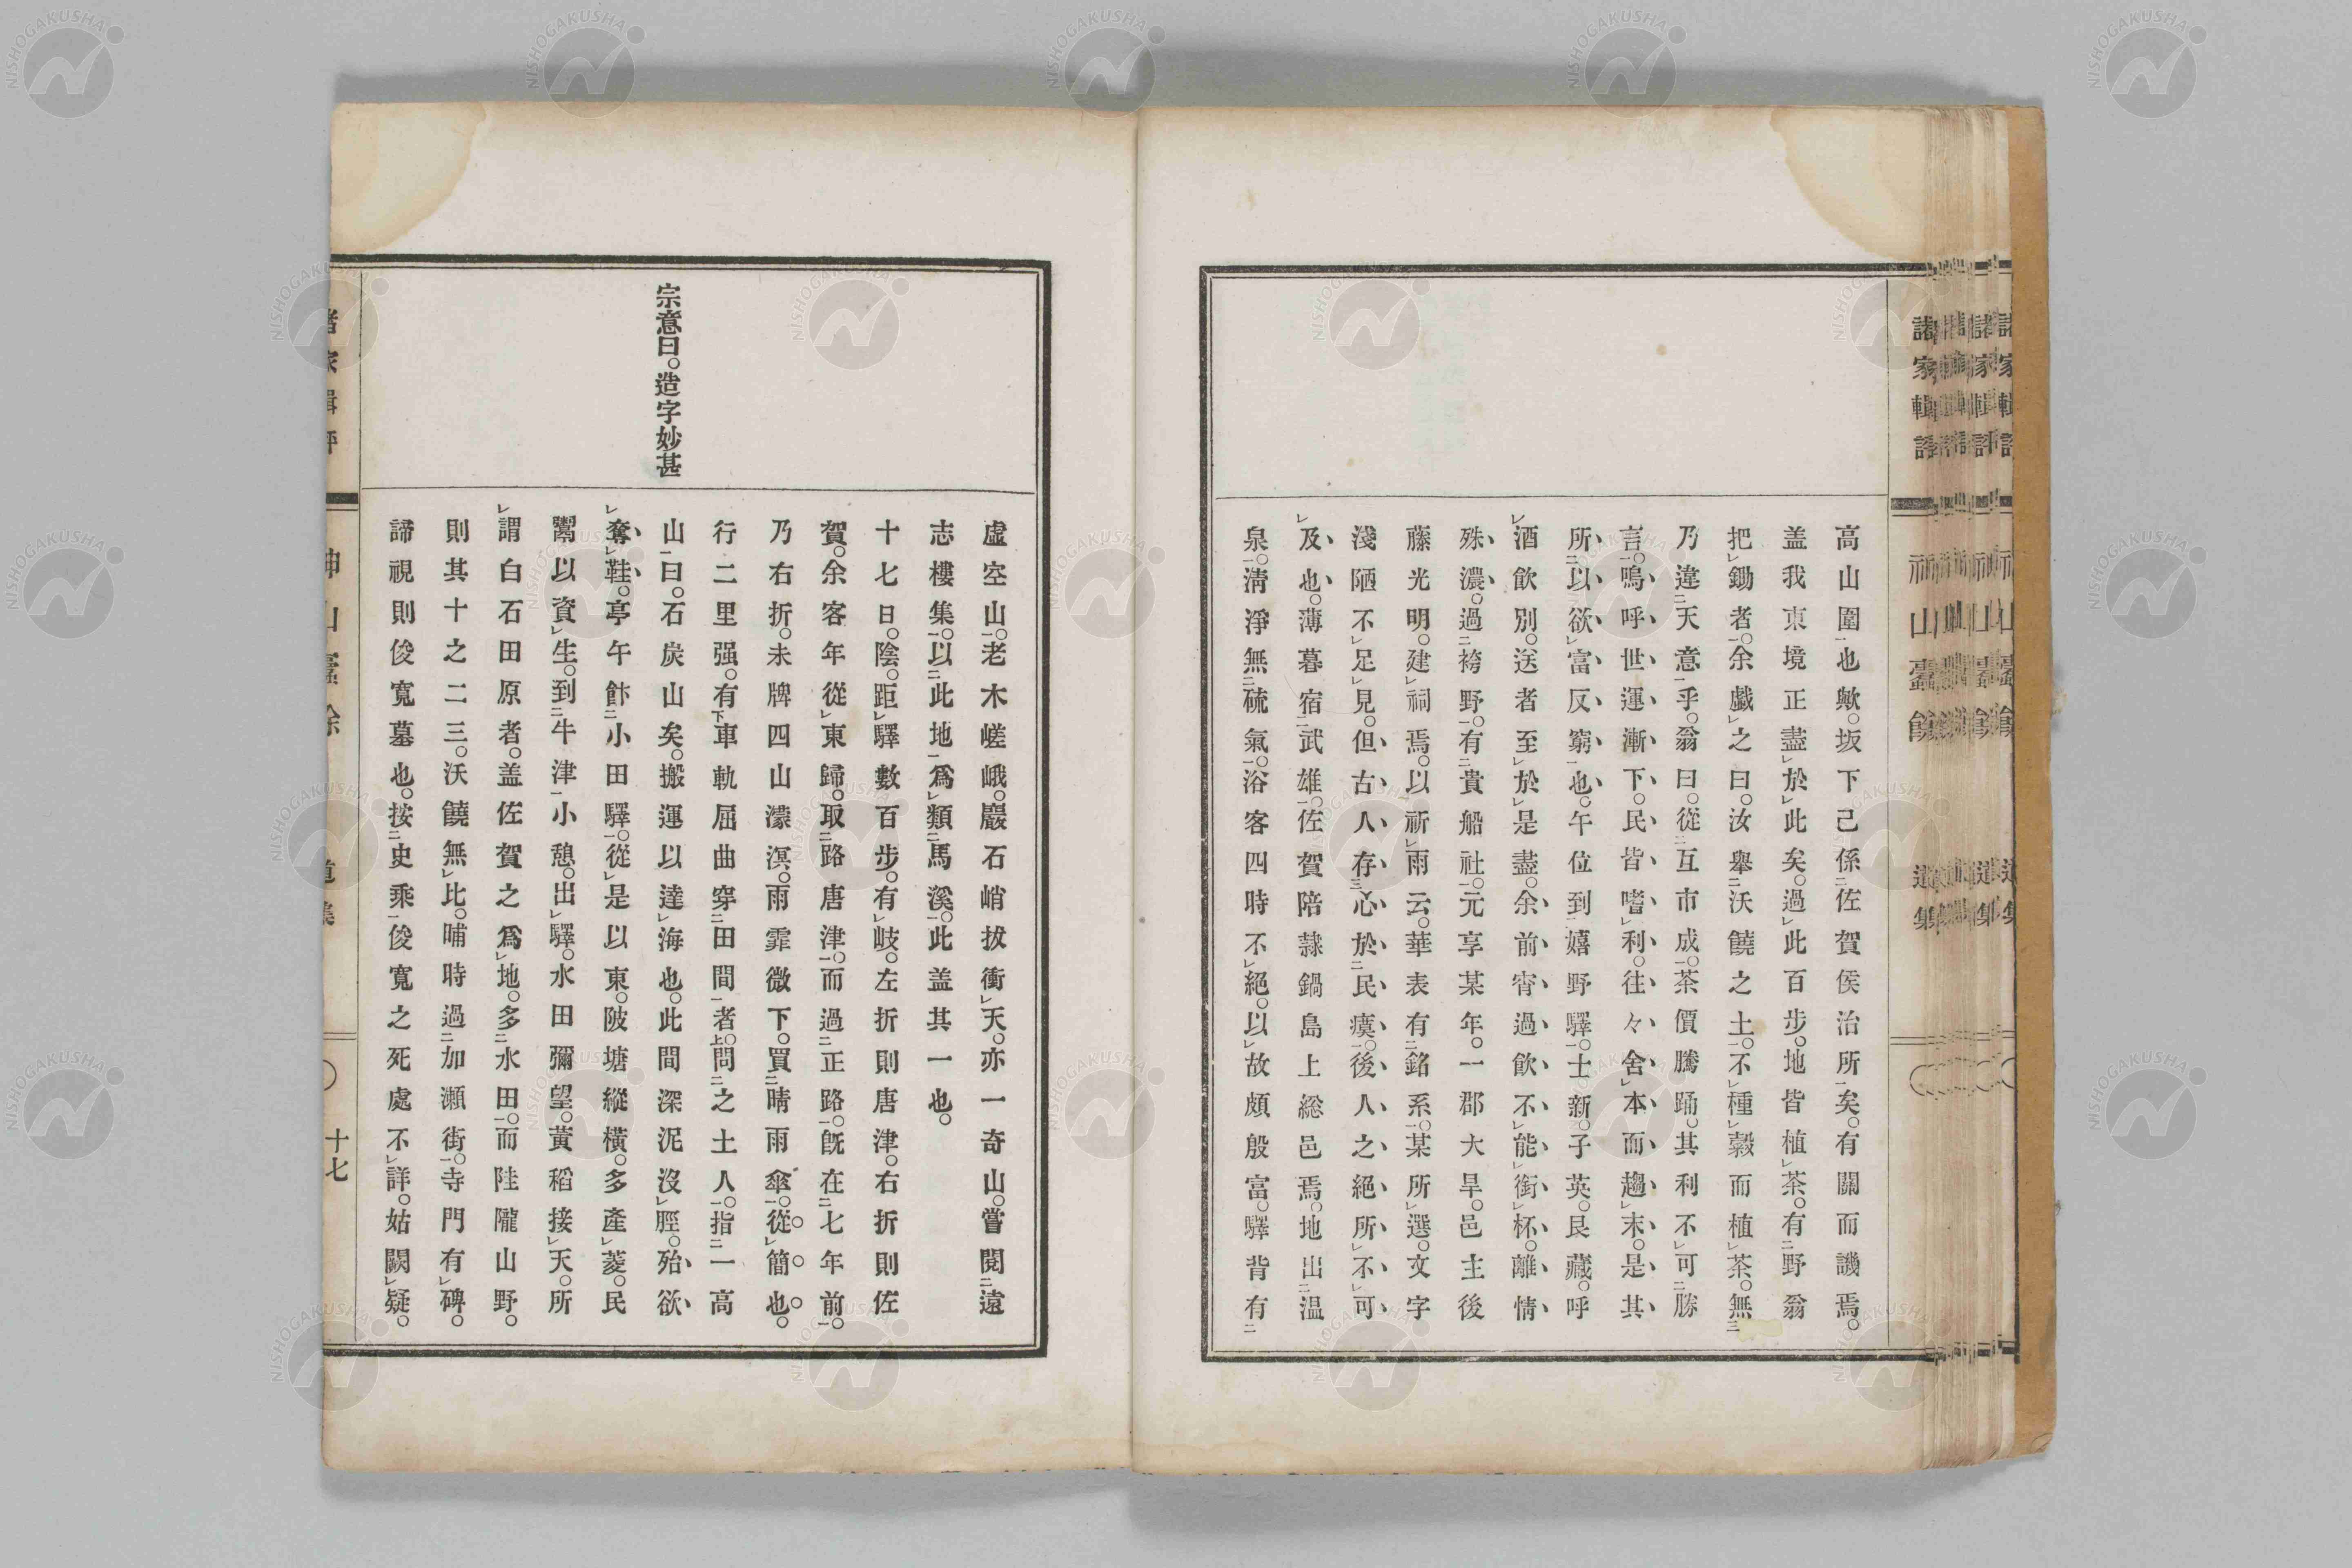 高山圍也歟。坂下己係佐賀侯治所矣。有關而譏焉。
盖我東境正盡於此矣。過此百步。地皆植茶。有野翁
把鋤者。余戲之曰。汝舉沃饒之土。不種穀而植茶。無
乃違天意乎。翁曰。從互市成。茶價騰踊。其利不可勝
言。嗚呼世運漸下。民皆嗜利。往々舍本而趨末。是其
所以欲富反窮也。午位到嬉野驛。士新。子英。艮藏。呼
酒飲別。送者至於是盡。余前宵過飲不能銜杯。離情
殊濃。過袴野。有貴船社。元享某年。一郡大旱。邑主後
藤光明。建祠焉。以祈雨云。華表有銘系。某所選。文字
淺陋不足見。但古人存心於民瘼。後人之絕所不可
及也。薄暮宿武雄。佐賀陪隷鍋島上総邑焉。地出温
泉。清淨無硫氣。浴客四時不絕。以故頗殷富。驛背有
虛空山。老木嵯峨。巖石峭拔衝天。亦一奇山。嘗閱遠
志樓集。以此地爲類馬溪。此盖其一也。
十七日。陰。距驛數百步。有岐。左折則唐津。右折則佐
賀。余客年從東歸。取路唐津。而過正路。旣在七年前。
乃右折。未牌四山濛溟。雨霏微下。買晴雨傘。從簡也。
行二里强。有車軌屈曲穿田間者。問之土人。指一高
山曰。石炭山矣。搬運以達海也。此間深泥沒脛。殆欲
奪鞋。亭午飰小田驛。從是以東。陂塘縱橫。多產菱。民
鬻以資生。到牛津小憩。出驛。水田彌望。黃稻接天。所
謂白石田原者。盖佐賀之爲地。多水田。而陸隴山野。
則其十之二三。沃饒無比。晡時過加瀨街。寺門有碑。
諦視則俊寬墓也。按史乘俊寬之死處不詳。姑闕疑。
宗意曰。造字妙甚
十七